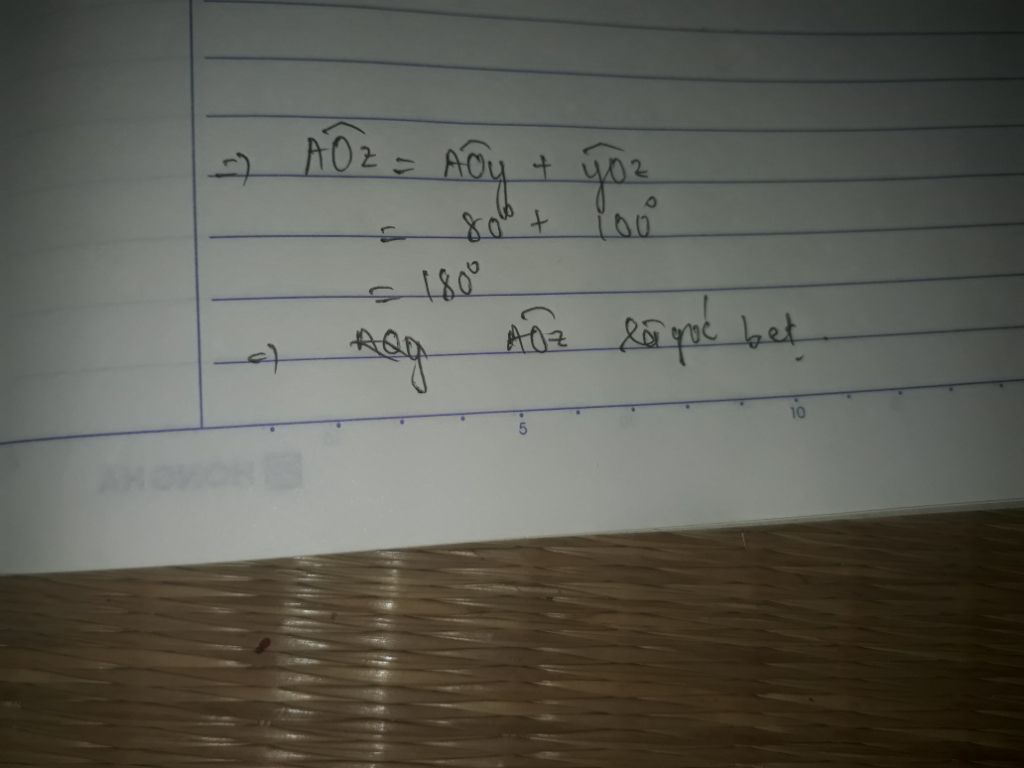 => AÔz = AÔy + yÔz
= 80° + 100°
= 180°
=> AÔz là góc bẹt.
5 10
HONG HA